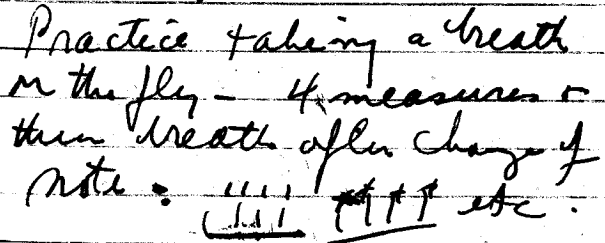 Practice taking a breath
on the fly - 4 measures &
then breath after change of
note: etc.